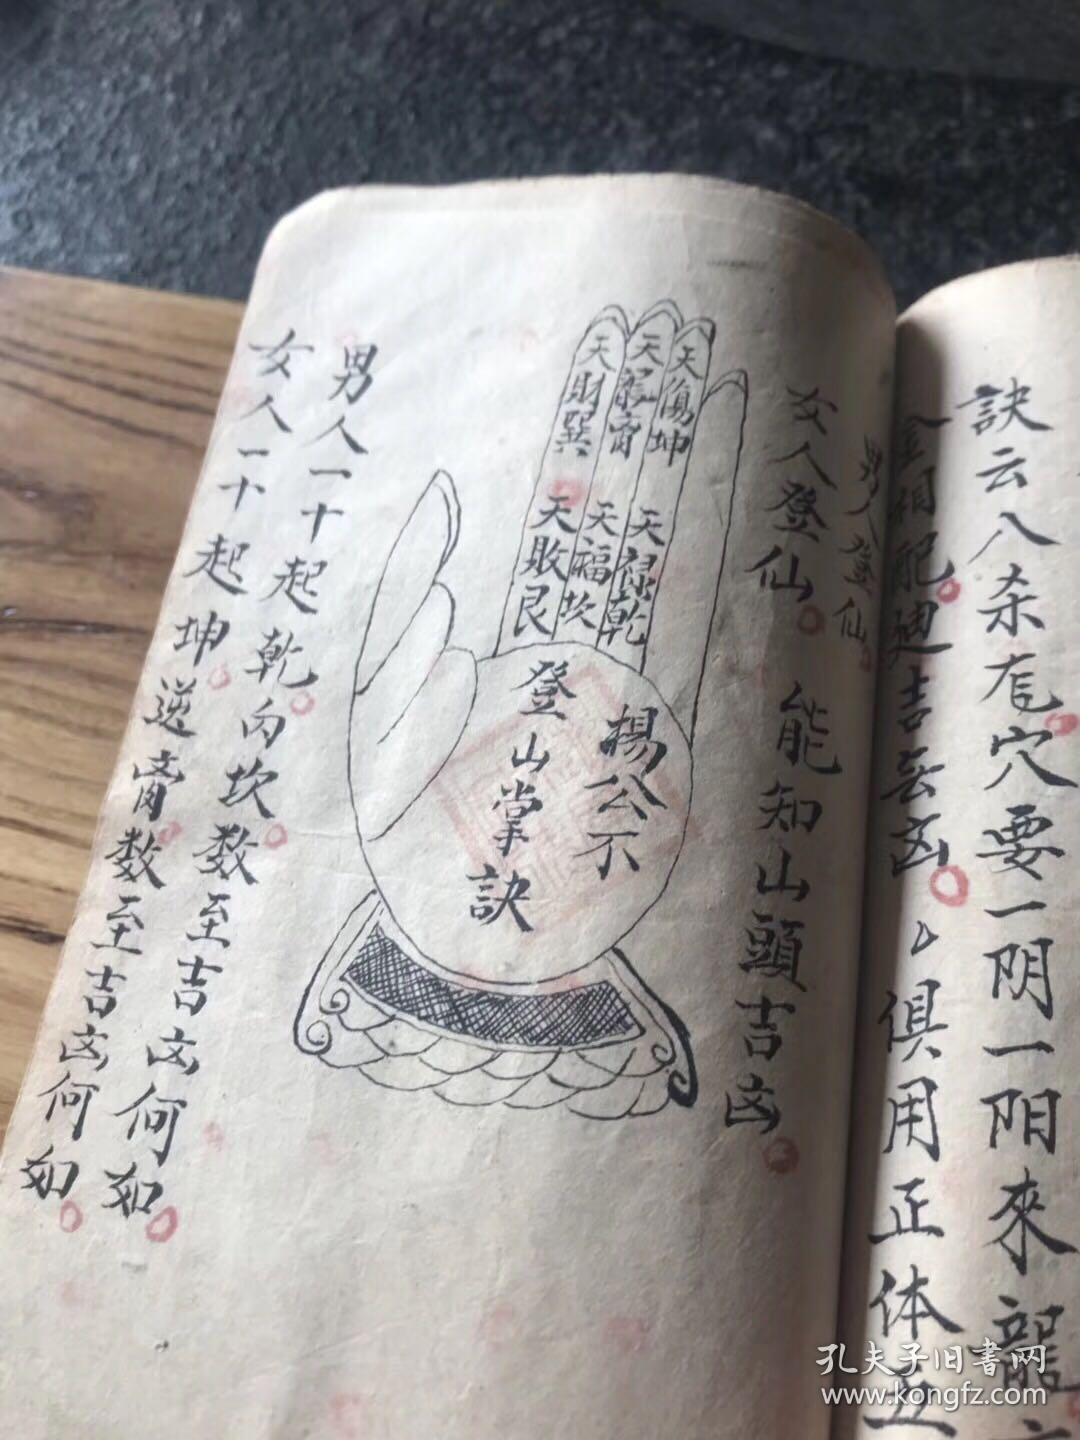 訣云八杀㡯穴要一阴一阳來龍
俱用正体五
男人登仙。
女人登仙。能知山頭吉凶。
天傷坤
天財巽
天禄乾
天福坎
天敗艮
楊公不
登山掌訣
男人一十起乾。向坎。数至吉凶何如。
女人一十起坤。逆裔。数至吉凶何如。
孔夫子旧書网
www.kongfz.com